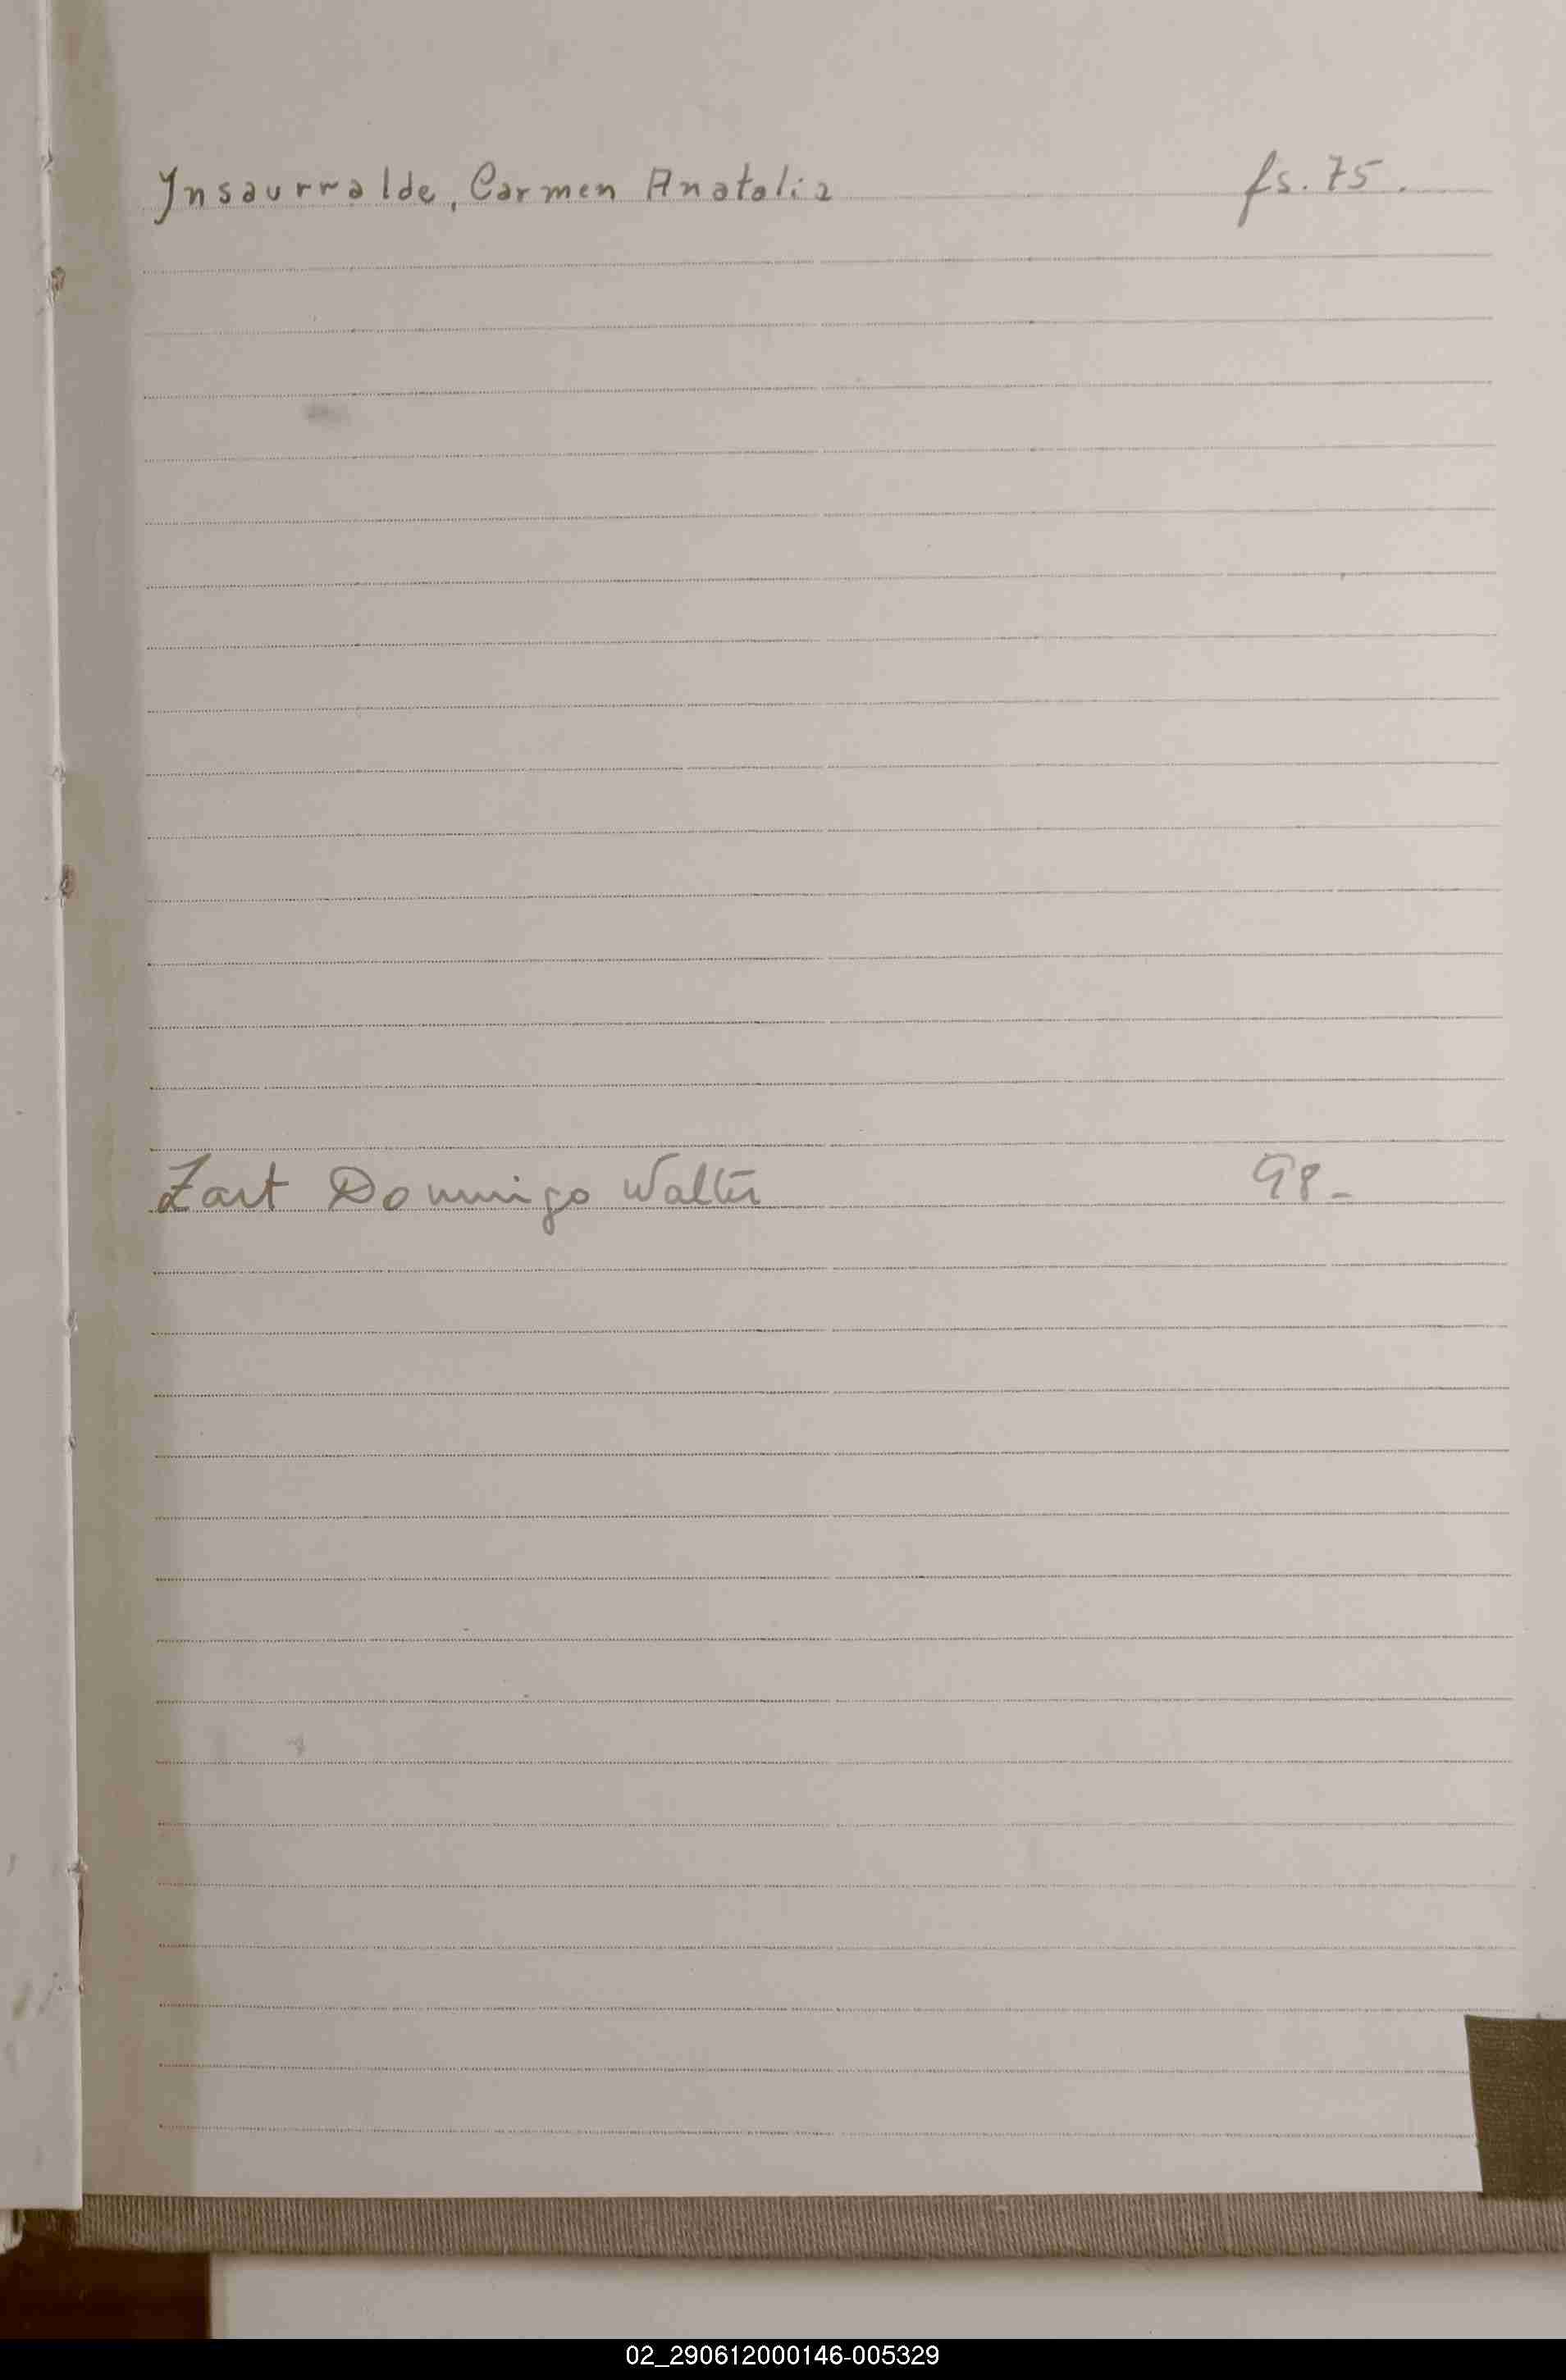 Ynsaurralde, Carmen Anatalia fs. 75.
Zart Domingo Walter 98-
02_290612000146-005329